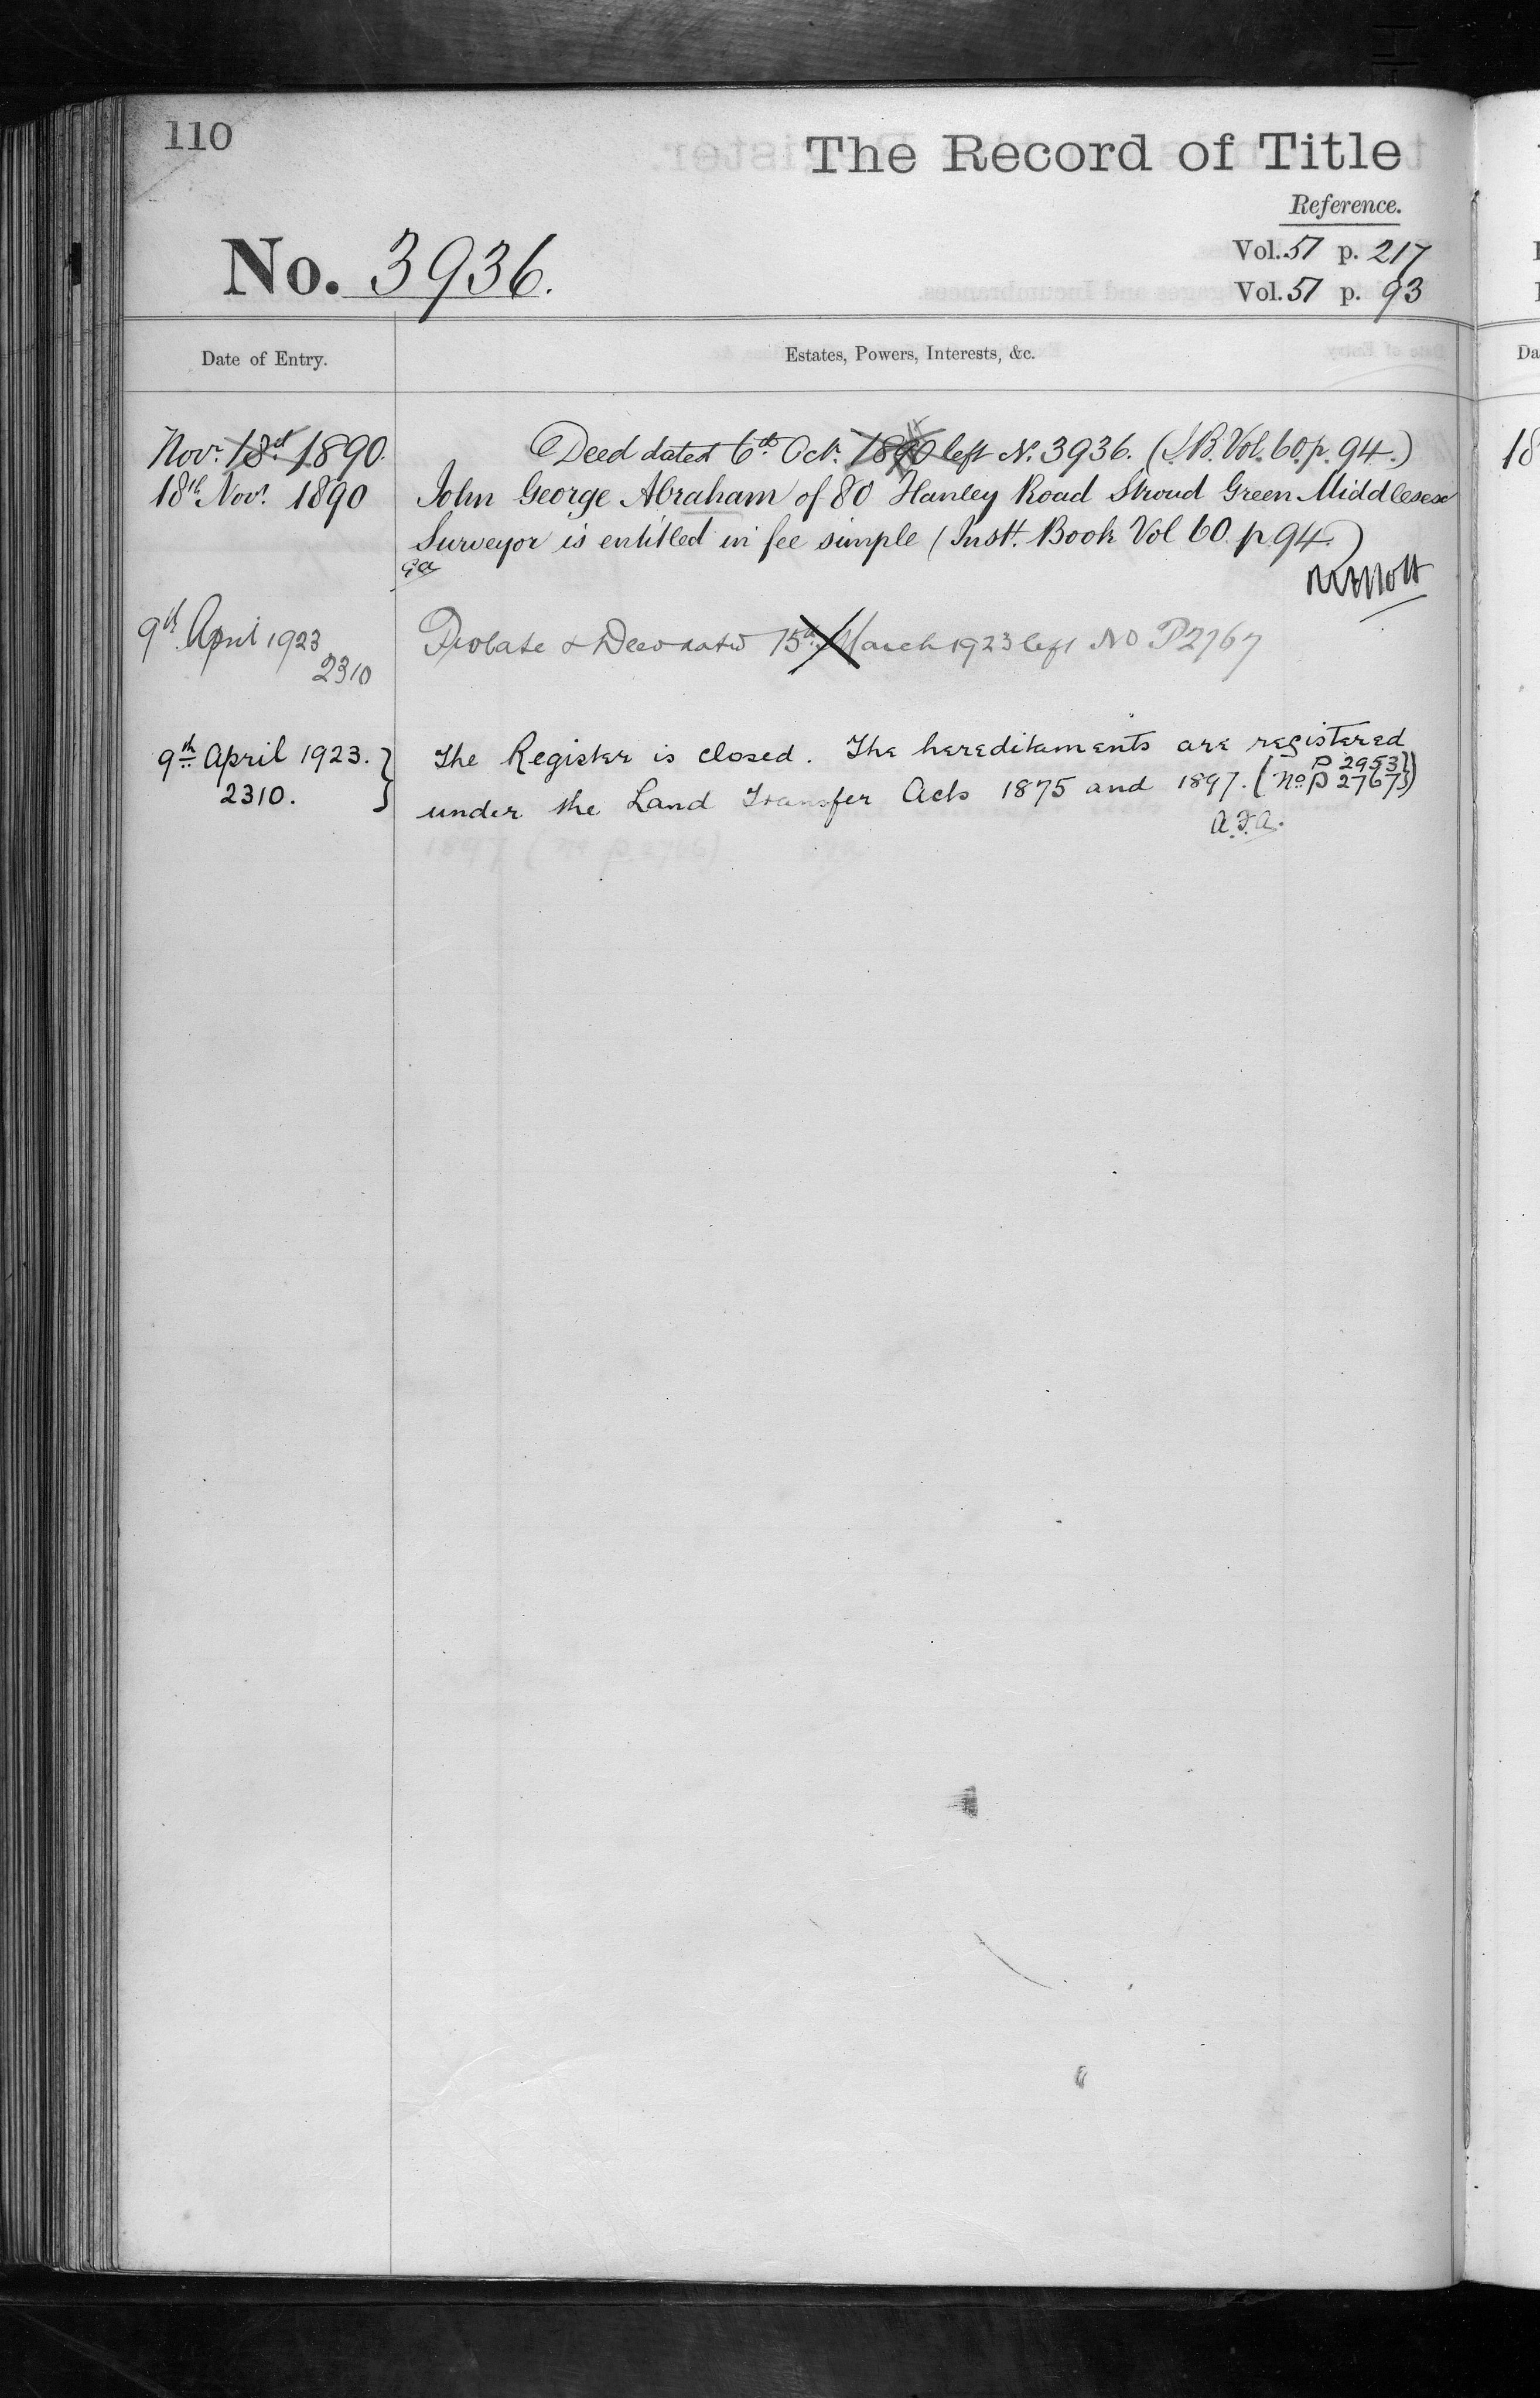 110
The Record of Title
Reference.
No. 3936.
Vol. 51 p. 217
Vol. 51 p. 93
Date of Entry.
Estates, Powers, Interests, &c.
Novr. 18th 1890.
Deed dated 6th Octr. 1890 left No. 3936. (I.B. Vol. 60. p. 94.)
18th Novr. 1890
John George Abraham of 80 Hanley Road Stroud Green Middlesex
Surveyor is entitled in fee simple (Inst. Book Vol 60 p 94.)
9th April 1923
2310
Probate & Deed dated 15th March 1923 left No P2767
9th April 1923.
2310.
The Register is closed. The hereditaments are registered
under the Land Transfer Acts 1875 and 1897. (No. P 2767)
P 2953
A.F.A.